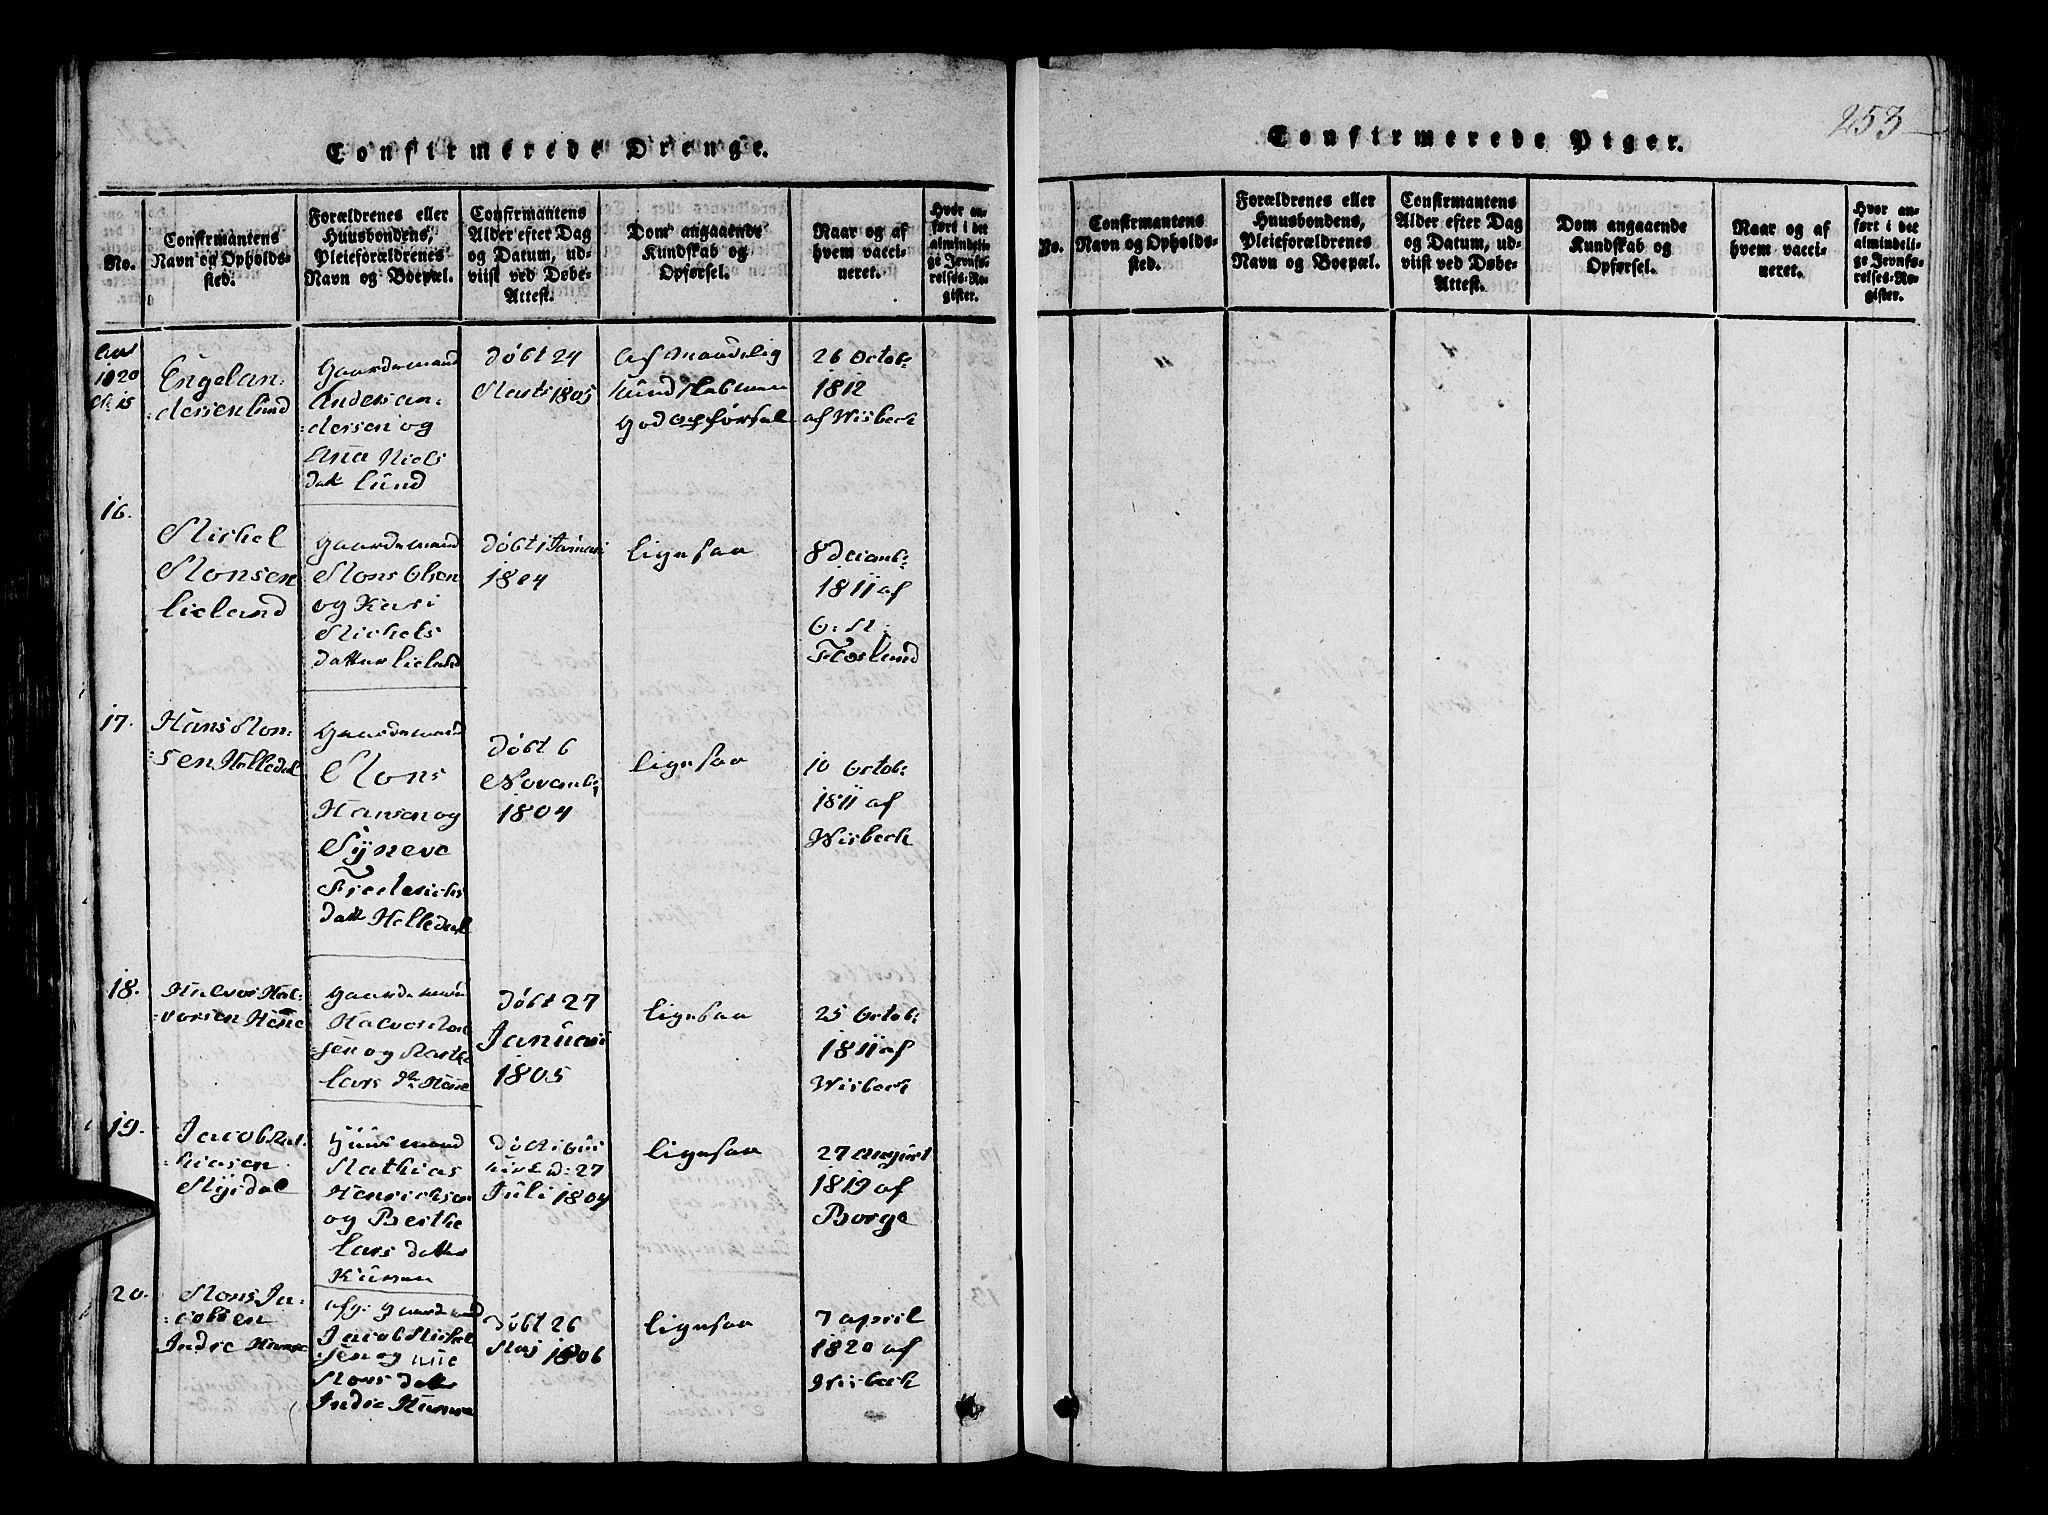 Confirmerede Drenge.
No.
Confirmantens
Navn og Opholds-
sted.
Forældrenes eller
Huusbondens,
Pleieforældrenes
Navn og Boepæl.
Confirmantens
Alder efter Dag
og Datum, ud-
viist ved Døbe-
Attest.
Dom angaaende
Kundskab og
Opførsel.
Naar og af
hvem vacci-
neret.
Hvor an-
ført i det
almindeli-
ge Jevnfø-
relses-Re-
gister.
1820
15
Engel an-
:dersen Lund
Gaardemand
Anders an-
:dersen og
Niels
datt Lund
døbt 24
Marts 1805
af maadelig
kundskab men
god opførsel
26 Octob:
1812
af Wisbech
16.
Michel
Monsen
Lieland
Gaardemand
Mons Olsen
og Kari
Michels
datter Lieland
døbt 1 Januari
1804
ligesaa
8 decemb:
1811 af
O: N:
Floslund
17.
Hans Mon-
:sen Helledal
Gaardemand
Mons
Hansen og
Syneve
Frederichs
datt Helledal
døbt 6
Novemb:
1804
ligesaa
10 Octob:
1811 af
Wisbech
18.
Halvor Hal-
:vorsen
Gaardemand
Halvor
sen og Marthe
Lars
døbt 27
Januari
1805
ligesaa
25 Octob:
1811 af
Wisbech
19.
Jacob Mat-
:hiasen
Myrdal
Huusmand
Mathias
Henrichsen
og Berthe
Lars datter
døbt i
kirke d: 27
Juli 1804
ligesaa
27 august
1819 af
Borge
20.
Mons Ja-
:cobsen
Indre
afg: gaardemand
Jacob Michel
sen og
Mons datter
Indre
døbt 26
Maj 1806
ligesaa
7 april
1820 af
Wisbech
253
Confirmerede Piger.
No.
Confirmantens
Navn og Opholds-
sted.
Forældrenes eller
Huusbondens,
Pleieforældrenes
Navn og Boepæl.
Confirmantens
Alder efter Dag
og Datum, ud-
viist ved Døbe-
Attest.
Dom angaaende
Kundskab og
Opførsel.
Naar og af
hvem vacci-
neret.
Hvor an-
ført i det
almindeli-
ge Jevnfø-
relses-Re-
gister.